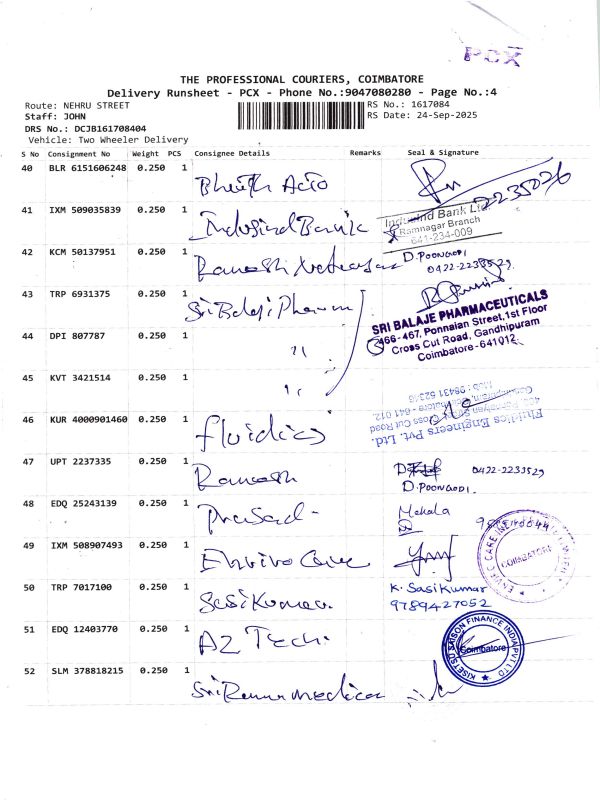 PCX
THE PROFESSIONAL COURIERS, COIMBATORE
Delivery Runsheet - PCX - Phone No.:9047080280 - Page No.:4
Route: NEHRU STREET
RS No.: 1617084
Staff: JOHN
RS Date: 24-Sep-2025
DRS No.: DCJB161708404
Vehicle: Two Wheeler Delivery
S No Consignment No Weight PCS Consignee Details Remarks Seal & Signature
40 BLR 6151606248 0.250 1 2235026
41 IXM 509035839 0.250 1 Indusind Bank
Indusind Bank Ltd
Ramnagar Branch
641-234-009
42 KCM 50137951 0.250 1 D. POONGODI
0422-2233529
43 TRP 6931375 0.250 1 Sri Balaji Pharma
SRI BALAJE PHARMACEUTICALS
466-467, Ponnaian Street, 1st Floor
Cross Cut Road, Gandhipuram
Coimbatore-641012.
44 DPI 807787 0.250 1 "
45 KVT 3421514 0.250 1 "
46 KUR 4000901460 0.250 1 fluidics
Fluidics Engineers Pvt. Ltd.
47 UPT 2237335 0.250 1 Ramesh 0422-2233529
D. POONGODI.
48 EDQ 25243139 0.250 1 Prasad Mehala
49 IXM 508907493 0.250 1 Enviro Care
COIMBATORE
50 TRP 7017100 0.250 1 Sasi Kumar. K. Sasi Kumar
9789427052
51 EDQ 12403770 0.250 1 AZ Tech.
KISETSU SAISON FINANCE INDIA PVT LTD
Coimbatore
52 SLM 378818215 0.250 1 Medical